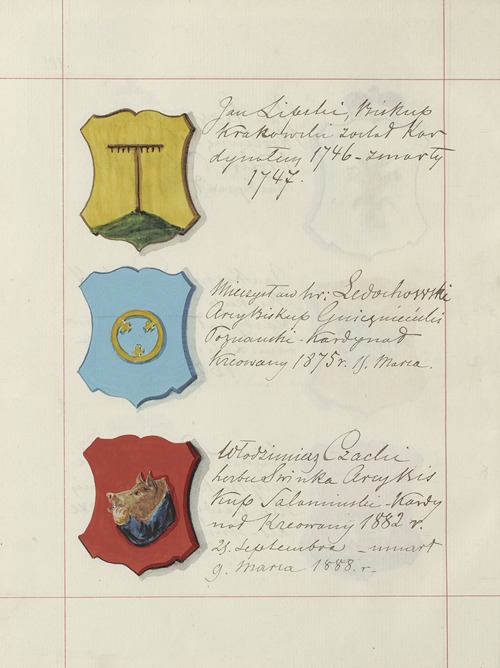 Jan Lipski, Biskup
Krakowski został Kar
dynałem 1746 - zmarły
1747.
Mieczysław hr. Ledochowski
ArcyBiskup Gnieznieński
Poznański - Kardynał
Kreowany 1875 r. Marca.
Włodzimierz Czacki
herbu Swinka ArcyBis
kup Salaminski - Kardy
nał Kreowany 1882 r.
25. Septembra - umarł
9. Marca 1888. r -